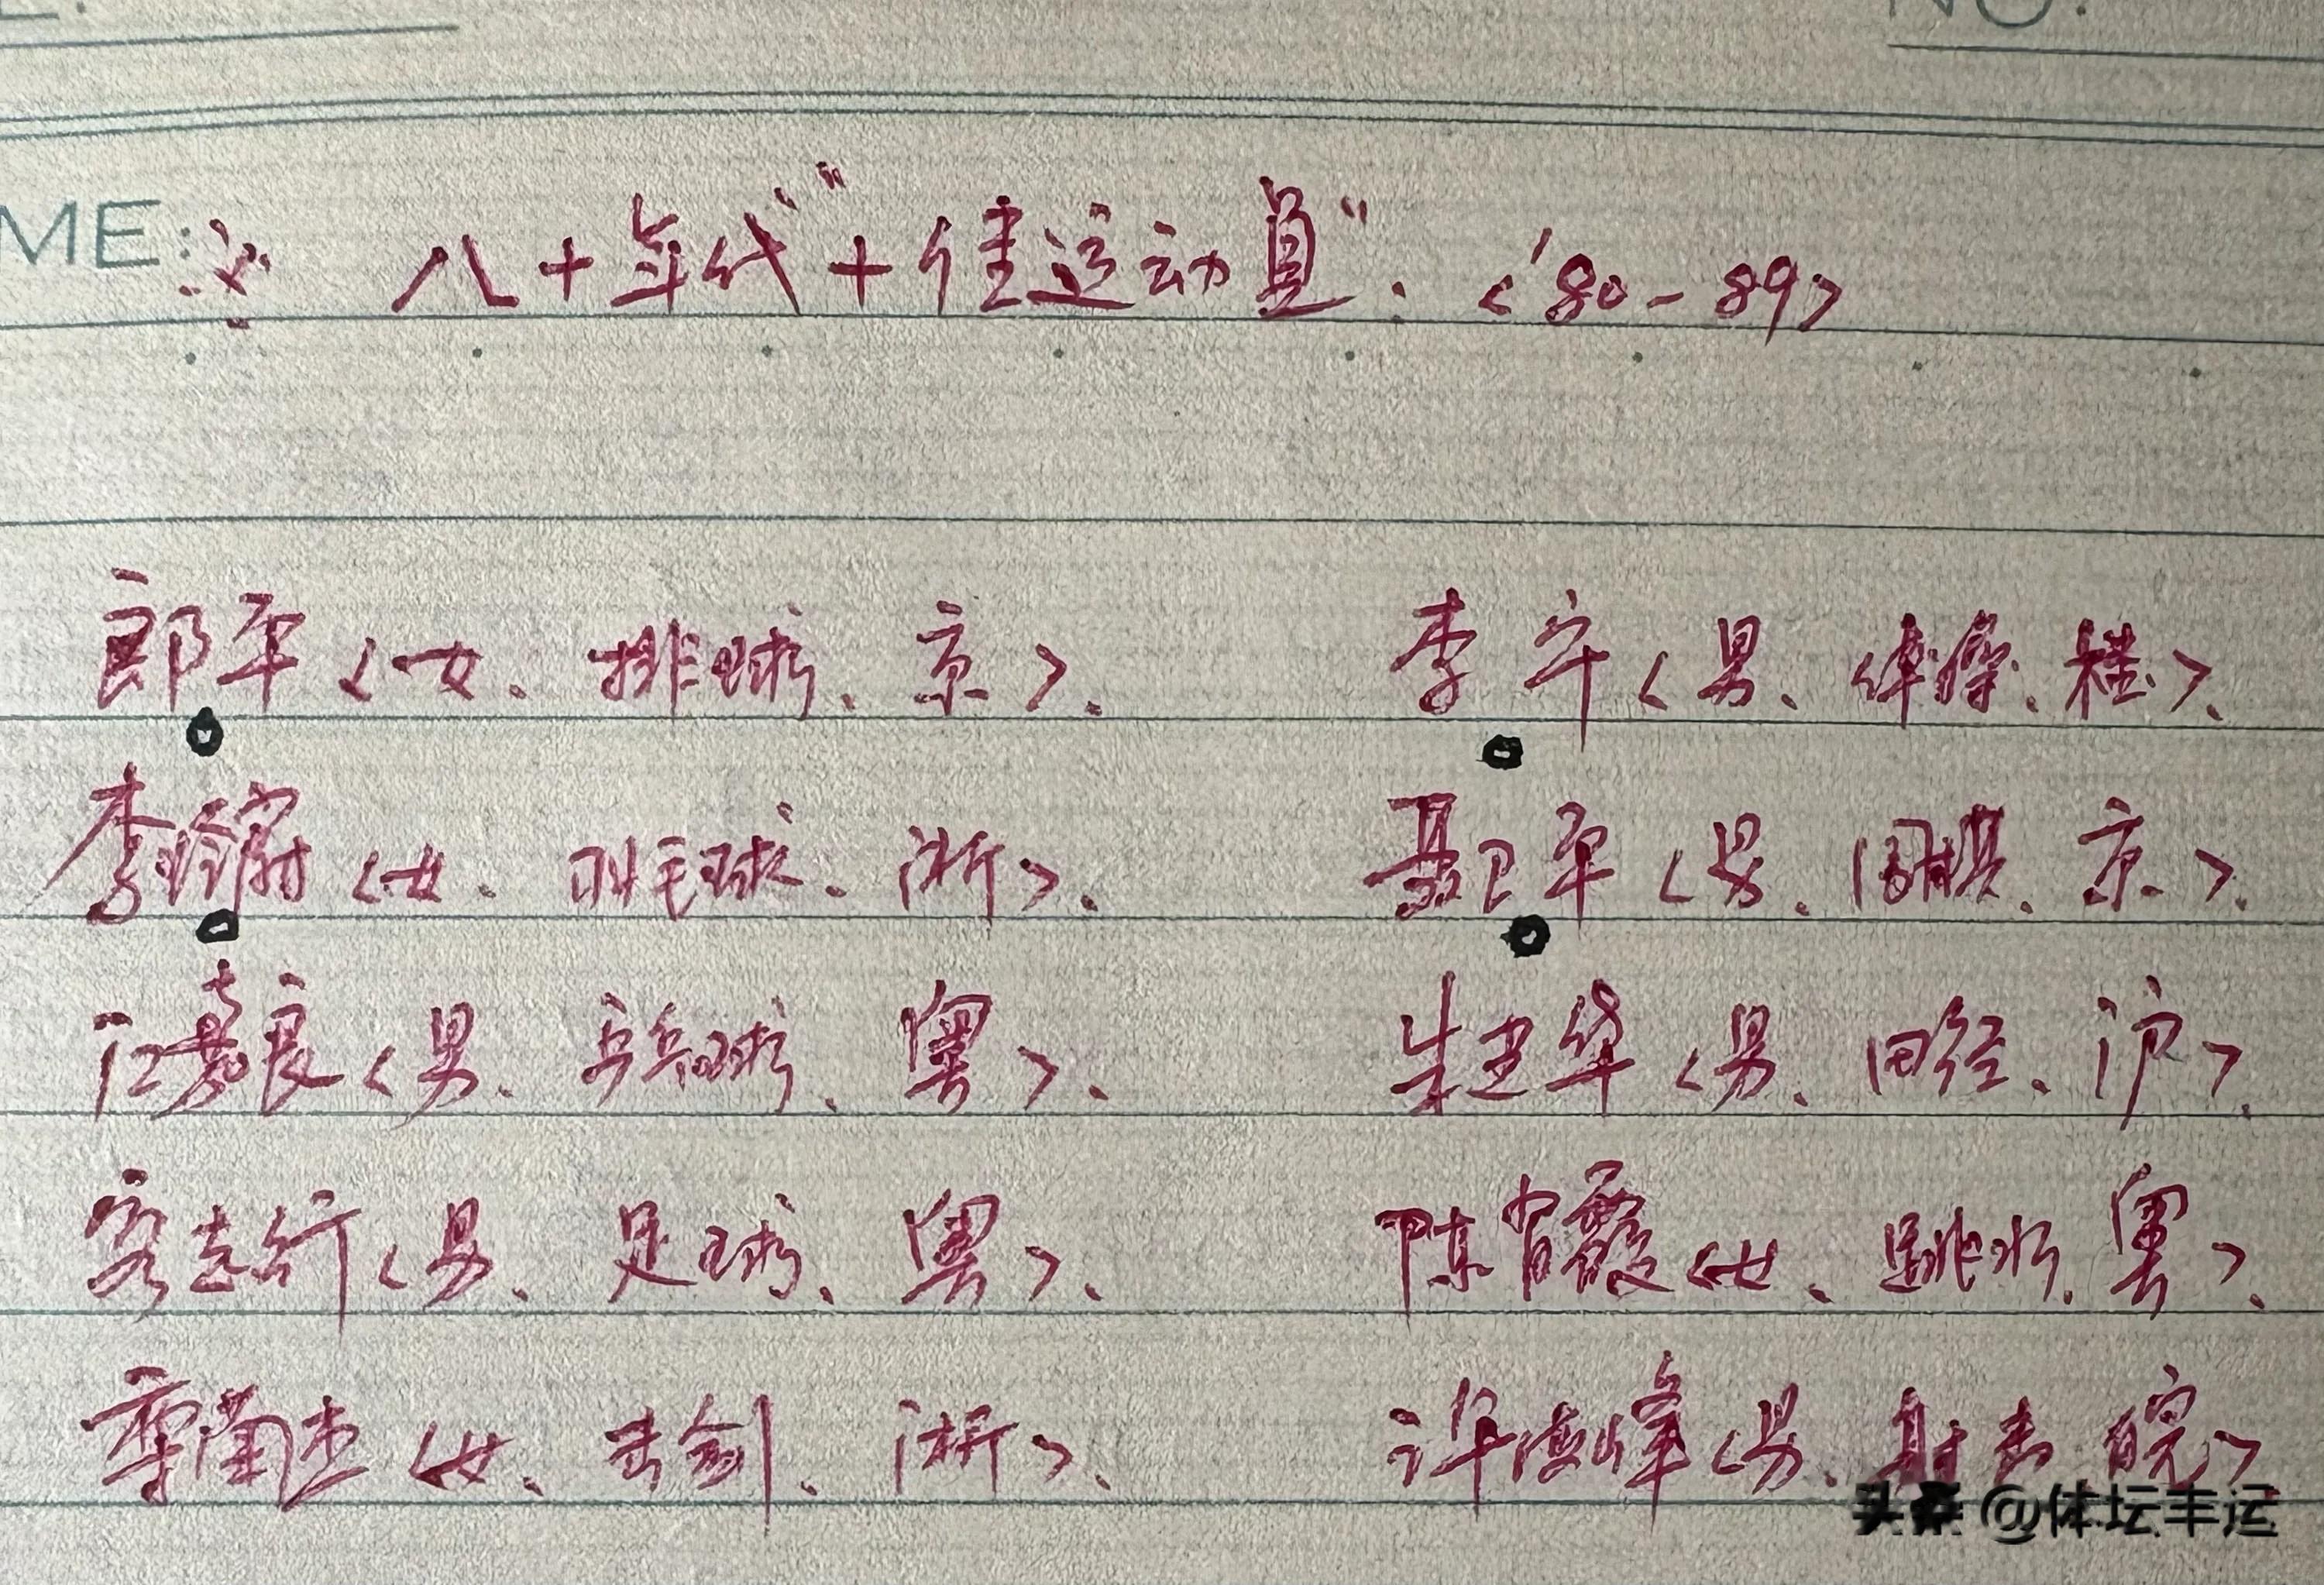 NO.
ME:
※ 八十年代"十佳运动员": <'80-89>
郎平<女、排球、京>、 李宁<男、体操、桂>、
李玲蔚<女、羽毛球、浙>、 聂卫平<男、围棋、京>、
江嘉良<男、乒乓球、粤>、 朱建华<男、田径、沪>、
容志行<男、足球、粤>、 陈肖霞<女、跳水、粤>、
栾菊杰<女、击剑、浙>、 许海峰<男、射击、皖>
头条 @体坛丰运